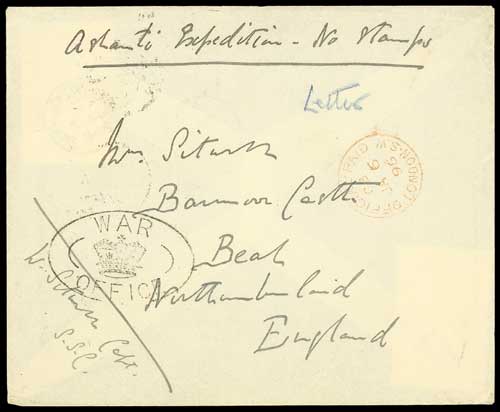 Ashanti Expedition - No Stamps
Letter
Mrs. Sitwell
Barmoor Castle
Beal
Northumberland
England
WAR
OFFICE
W. Sitwell Capt.
S.S.C.
LONDON.S.W
OFFICIAL PAID
96